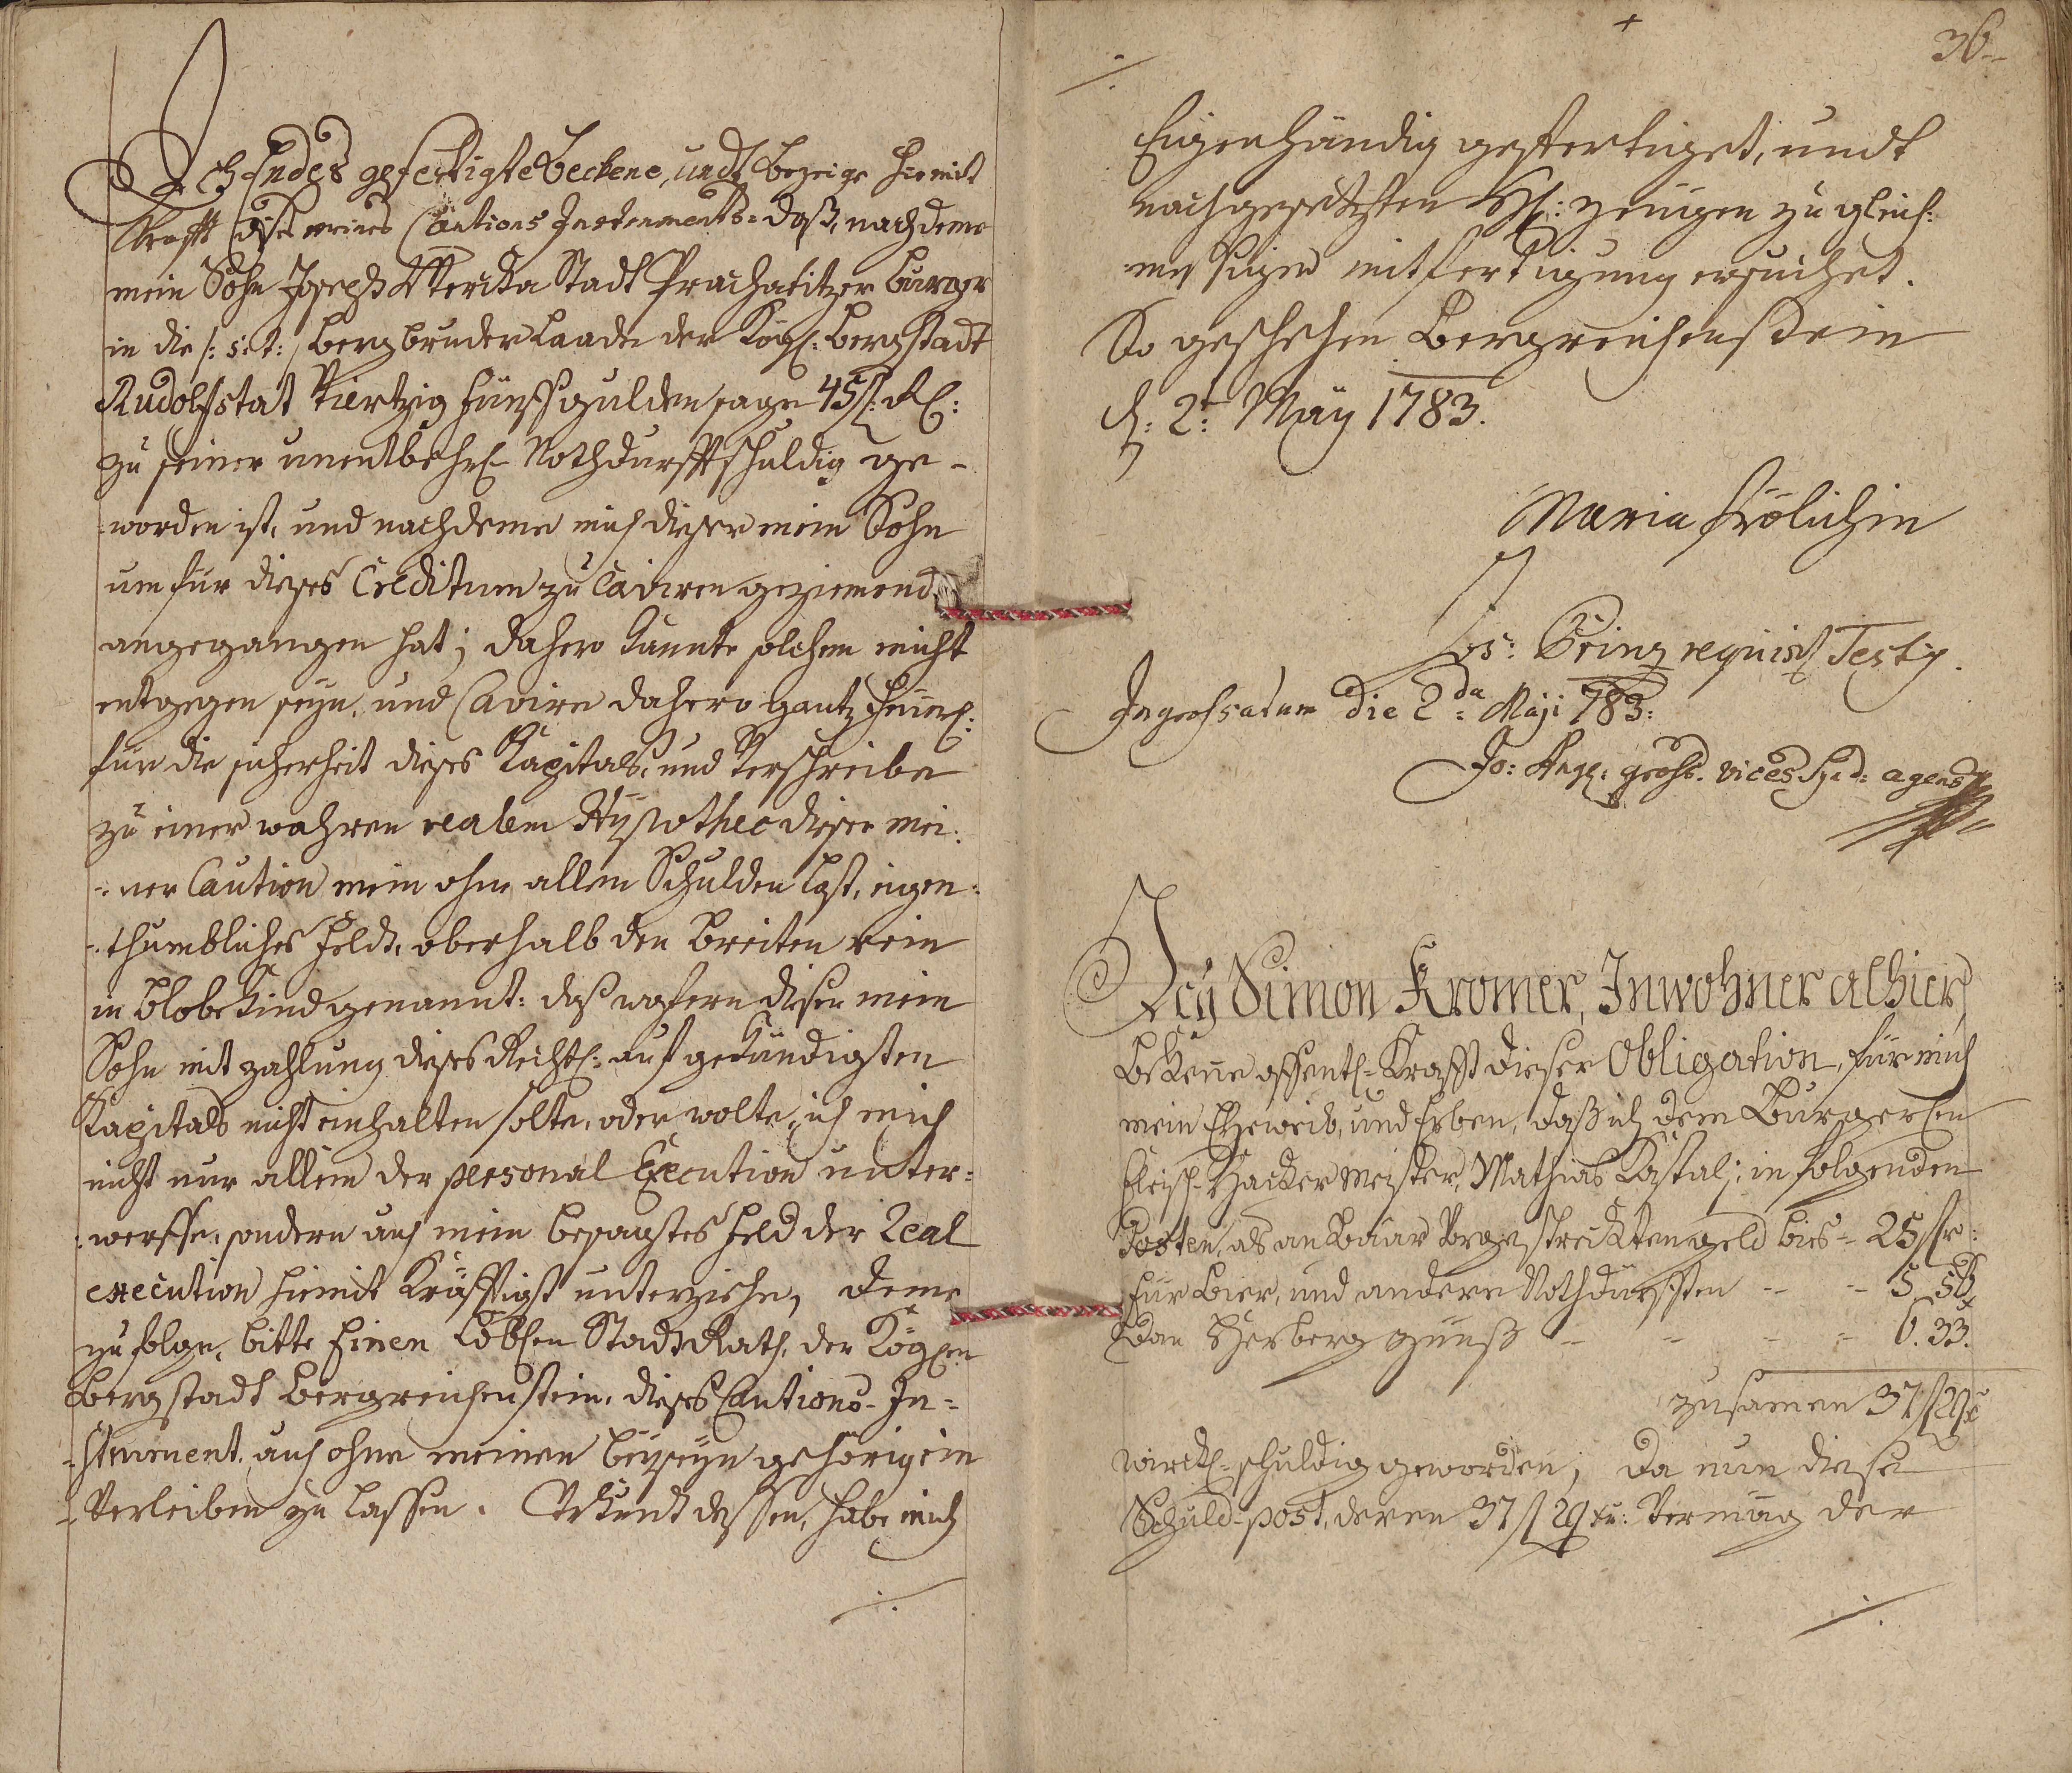 Ich Endes gefertigte Beckene, undt bezeige hiemit
Krafft dises meines Cautions Instruments: daß, nachdeme
mein Sohn Joseph Stadt Prachatitzer Burger
in die /: s: t: / Bergbruder Laade der Kögl: Bergstadt
Rudolfstat Viertzig fünff gulden sage 45 f:
zu seiner unentbehrl- Nothdurfft schuldig ge-
worden ist, und nachdeme mich dieser mein Sohn
um für dieses Creditum zu Caviren geziemend
angegangen hat; dahero kunnte solchem nicht
entgegen seyn, und Cavire dahero gantz
für die sicherheit dieses Kapitals, und Verschreibe
zu einer wahren realen Hypothec dieser mei:
:ner Caution mein ohne allen Schulden last, eigen:
:thumbliches Feldt, oberhalb den Breiten rein
in genannt: daß wofern dieser mein
Sohn mit zahlung dieses Rechtl: aufgekündigten
Kapitals nicht einhalten solte, oder wolte, ich mich
nicht nur allein der personal Execution unter:
:werffe, sondern auch mein besagtes Feld der Real
execution hiemit Kräfftigst unterziehe, deme
zu folge, bitte Einen Löblen Stadt Rath, der Köglen
Bergstadt Bergreichenstein, dieses Cautions- In-
-strument, auch ohne meinen beyseyn gehörig ein
-Verleiben zu lassen. Urkund dessen, habe mich
./.
36
./.
Eigenhändig gefertiget, undt
nachgesetzten H: zeugen zu gleich:
mässigen mitfertigung ersuchet.
So geschehen Bergreichenstein
d: 2t: May 1783.
Maria Frölichin
Jos: Prinz requisit Testis.
Ingrossatum die 2da Maji 783:
Jo: Ang: grohs. vices Synd: agens
Ich Simon Kromer, Inwohner alhier,
Bekene offentl- Krafft dieser Obligation, für mich
mein Eheweib, und Erben, daß ich dem Burgerlen
Fleisch-Hacker Meister, Mathias Kastal; in folgenden
Posten, als an Baar Vorgestreckten geld bis- 25 f:
für Bier, und andere Nothdürfften - - 5 56
dan Herberg zünß - - - - 6. 33.
zusamen 37 f 29 x
wirckl- schuldig geworden; da nun diese
Schuld-post, deren 37 f 29 xr: Vermüg der
./.